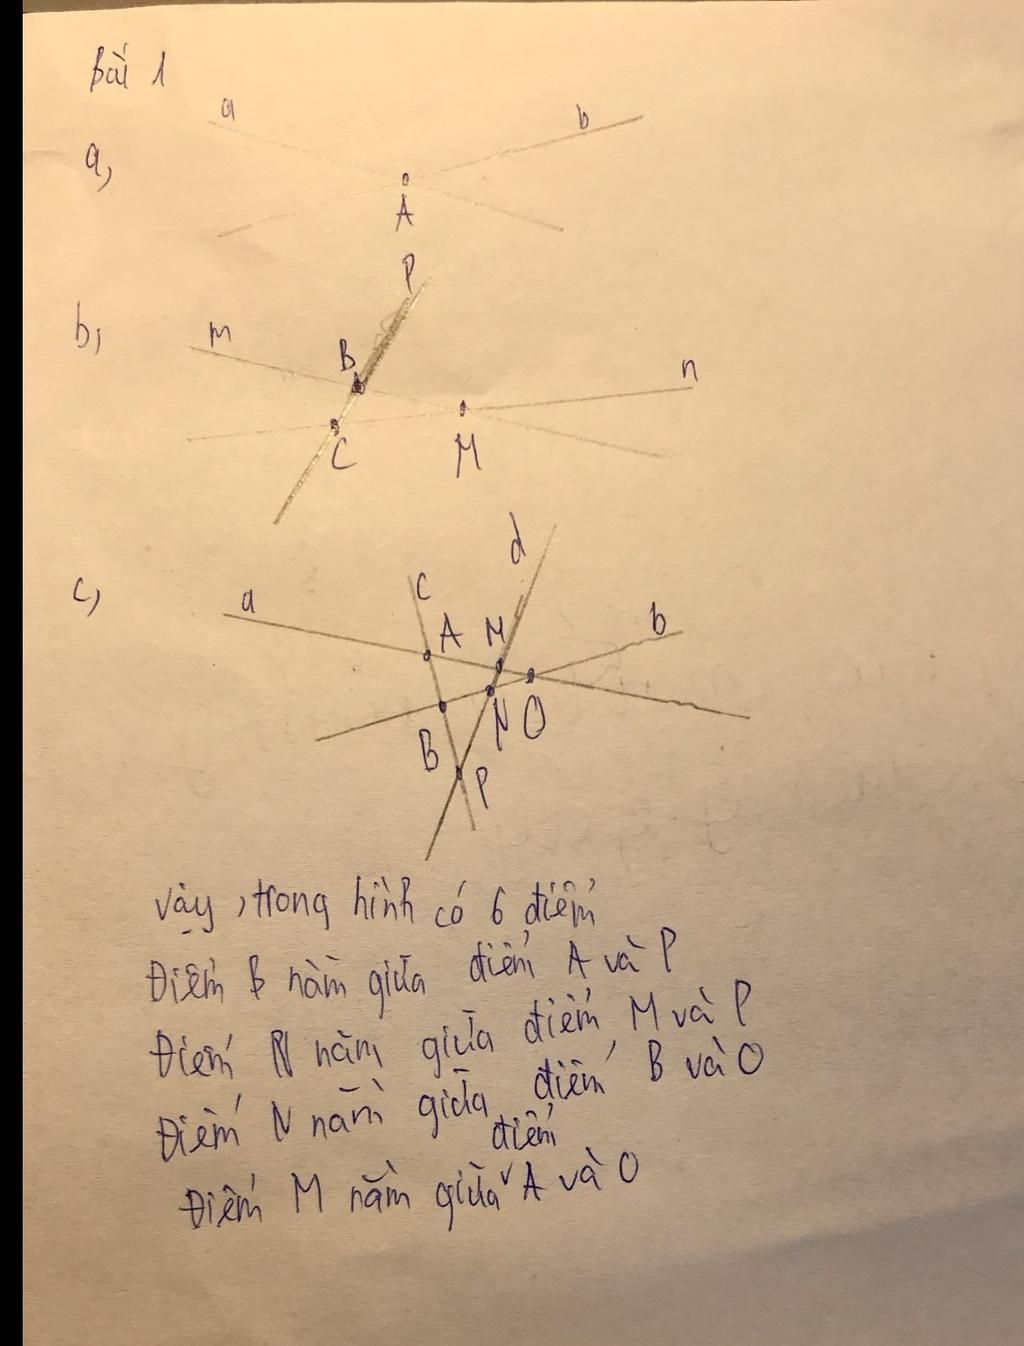 Bài 1
a,
a
b
A
b,
P
m
B
n
C
M
c,
d
c
a
A
M
b
B
N
O
P
vậy, trong hình có 6 điểm
Điểm B nằm giữa điểm A và P
Điểm N nằm giữa điểm M và P
Điểm N nằm giữa điểm B và O
điểm
Điểm M nằm giữa A và O